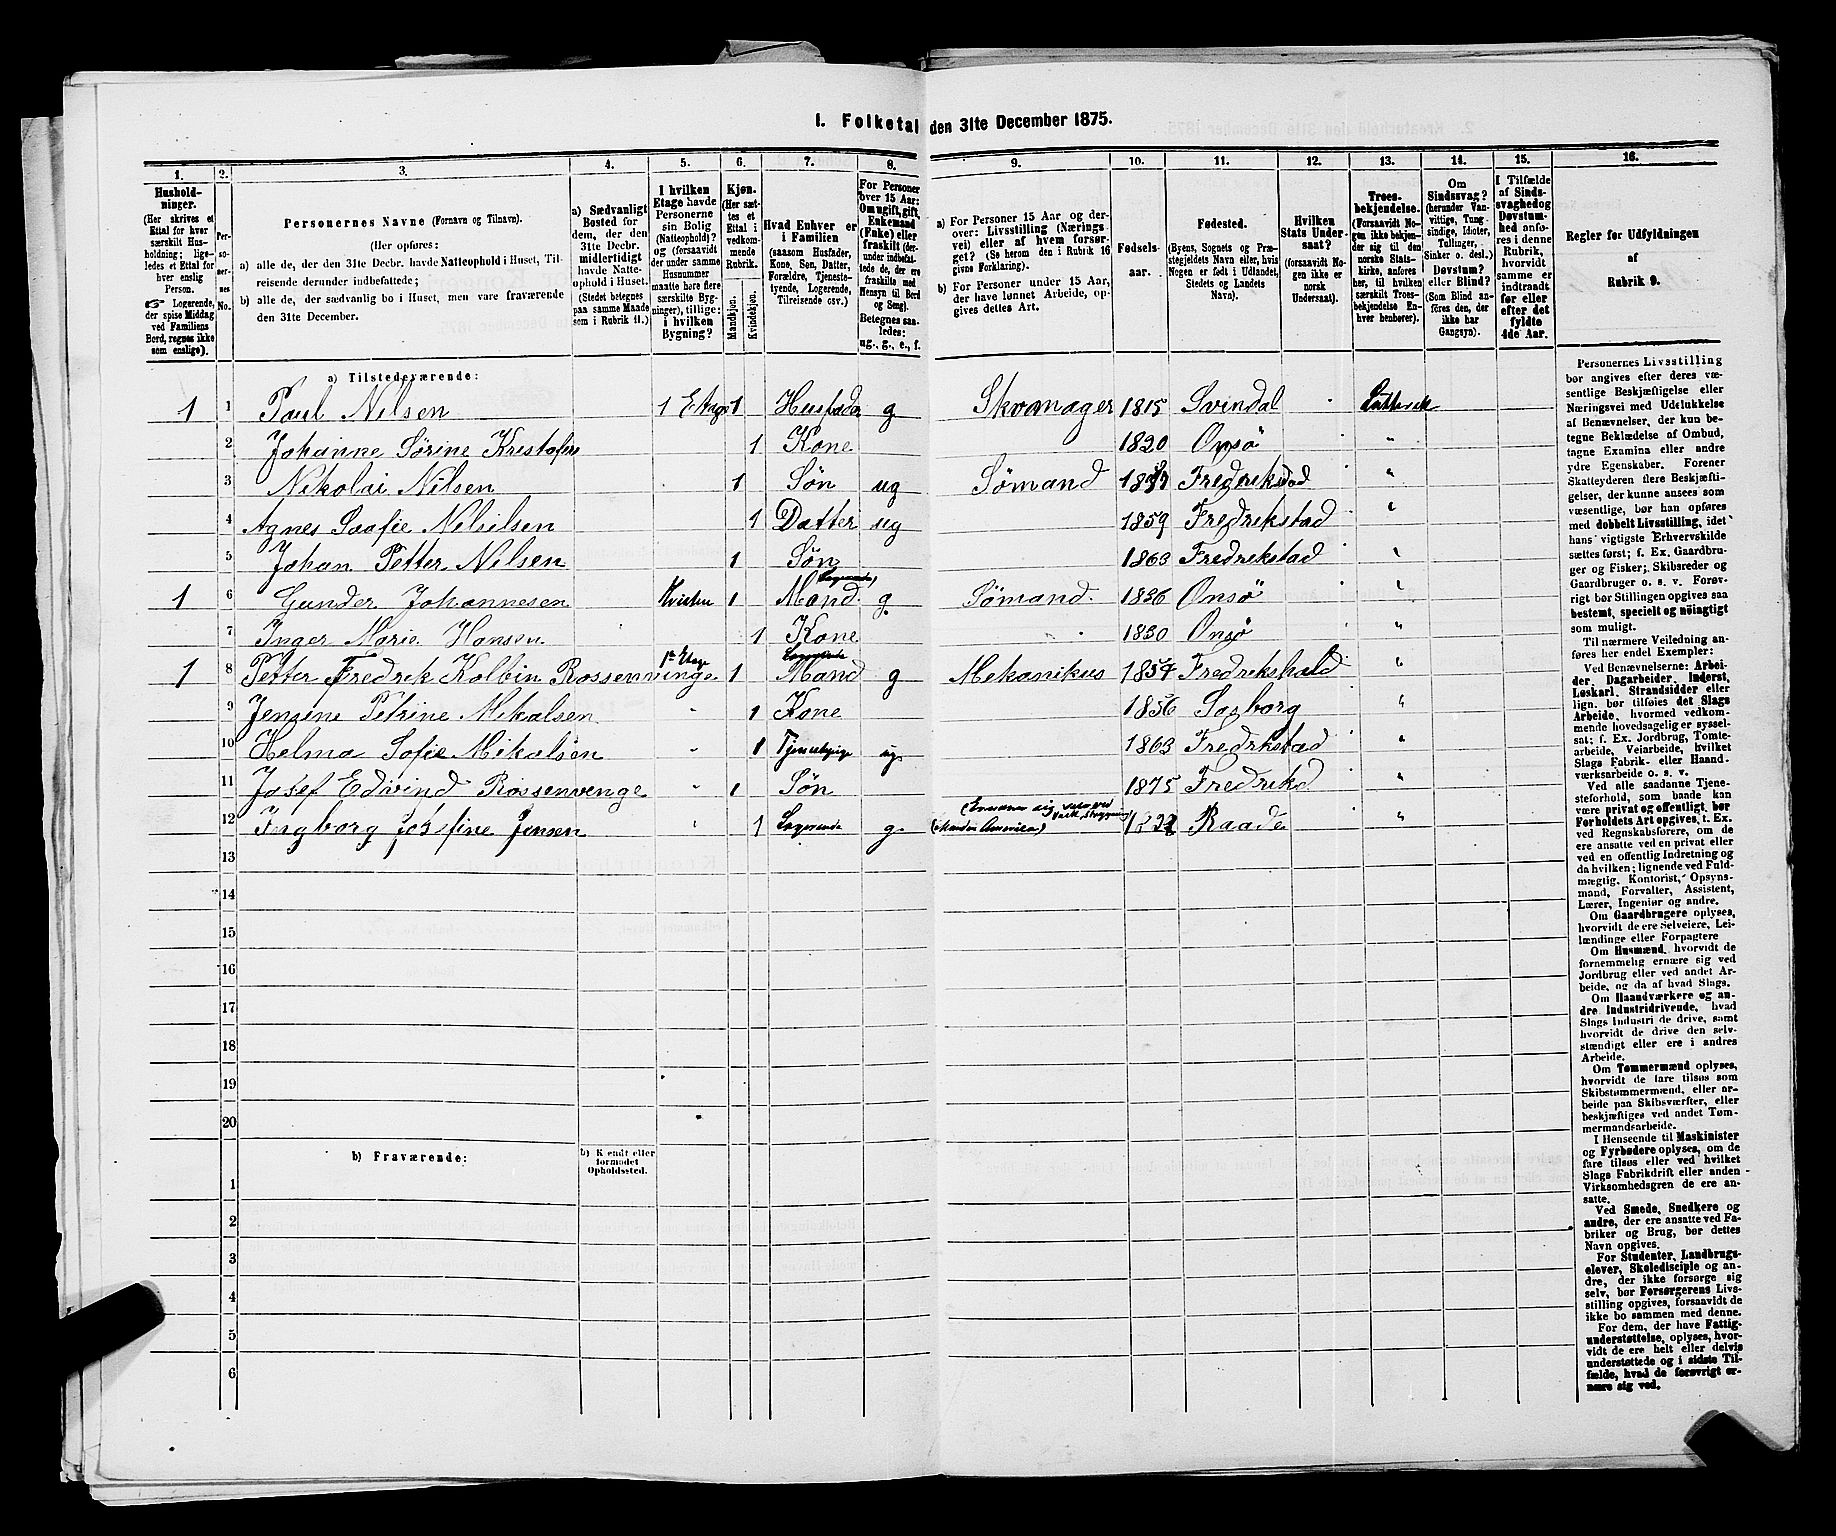 1. Folketal den 31te December 1875.
1. 2. 3. 4. 5. 6. 7. 8. 9. 10. 11. 12. 13. 14. 15. 16.
Hushold-
ninger.
(Her skrives et
Ettal for hver
særskilt Hus-
holdning; lige-
ledes et Ettal for
hver enslig
Person.
Logerende,
der spise Middag
ved Familiens
Bord, regnes ikke
som enslige).
Per-
so-
ner-
nes
No.
Personernes Navne (Fornavn og Tilnavn).
(Her opføres:
a) alle de, der den 31te Decbr. havde Natteophold i Huset, Til-
reisende derunder indbefattede;
b) alle de, der sædvanlig bo i Huset, men vare fraværende
den 31te December.
a) Sædvanligt
Bosted for
dem, der den
31te Decbr.
midlertidigt
havde Natte-
ophold i Huset.
(Stedet betegnes
paa samme Maade
som i Rubrik 11.)
I hvilken
Etage havde
Personerne
sin Bolig
(Natteophold)?
(forsaavidt
der under samme
Husnummer
maatte høre flere
særskilte Byg-
ninger), tillige:
i hvilken
Bygning?
Kjøn.
(Her sæt-
tes et
Ettal i
vedkom-
mende
Rubrik.
Mandkjøn.
Kvindekjøn.
Hvad Enhver er
i Familien
(saasom Husfader,
Kone, Søn, Datter,
Forældre, Tjeneste-
tyende, Logerende,
Tilreisende osv.)
For Personer
over 15 Aar:
Om ugift, gift,
Enkemand
(Enke) eller
fraskilt (der-
under indbefat-
tede de, der ere
fraskilte med
Hensyn til Bord
og Seng).
Betegnes saa-
ledes:
ug., g., e., f.
a) For Personer 15 Aar og der-
over: Livsstilling (Nærings-
vei) eller af hvem forsør-
get? (Se herom den i Rubrik 16
givne Forklaring).
b) For Personer under 15 Aar,
der have lønnet Arbeide, op-
gives dettes Art.
Fødsels-
aar.
Fødested.
(Byens, Sognets og Præ-
stegjeldets Navn eller, hvis
Nogen er født i Udlandet,
Stedets og Landets
Navn).
Hvilken
Stats Under-
saat?
(forsaavidt No-
gen ikke er
norsk
Undersaat).
Troes-
bekjendelse.
(Forsaavidt No-
gen ikke bekjen-
der sig til den
norske Stats-
kirke, anføres
her, til hvilken
særskilt Troes-
bekjendelse En-
hver henhører).
Om
Sindssvag?
(herunder Van-
vittige, Tung-
sindige, Idioter,
Tullinger,
Sinker o. desl.)
Døvstum?
eller Blind?
(Som Blind an-
føres den, der
ikke har
Gangsyn).
I Tilfælde
af Sinds-
svaghed og
Døvstum-
hed anfø-
res i denne
Rubrik,
hvorvidt
samme er
indtraadt
før eller
efter det
fyldte
4de Aar.
Regler for Udfyldningen
af
Rubrik 9.
a) Tilstedeværende:
1 1 Paul Nilsen 1 Etage 1 Husfader g Skomager 1815 Svindal
2 Johanne Sørine Krestofers 1 Kone 1820 Onsö "
3 Nikolai Nilsen 1 Søn ug Sømand Fredrekstad "
4 Agnes Soofie Nelsilsen 1 Datter ug 1859 Fredrikstad "
5 Johan Petter Nilsen 1 Søn 1863 Fredrekstad "
1 6 Gunder Johannesen Kvisten 1 Logerende Mand g Sømand 1836 Onsö "
7 Inger Marie Hansen 1 Kone 1830 Onsö "
1 8 Petter Fredrik Kolbin Rossenvinge 1te Etage 1 Logerende Mand g Mekanikus 1854 Fredrikshald "
9 Jensine Petrine Mikalsen " 1 Kone 1856 Sasborg "
10 Helma Sofie Mikalsen " 1 Tjenestepige ug 1863 Fredrkstad "
11 Josef Edvind Rossenvenge " 1 Søn 1875 Fredriksd "
12 Ingborg Josefine Jensen " 1 Logerende g (Ernærer sig ved (Manden America) Raade "
13
14
15
16
17
18
19
20
b) Fraværende:
b) Kjendt eller
formodet
Opholdssted.
1
2
3
4
5
6
Personernes Livsstilling
bør angives efter deres væ-
sentlige Beskjæftigelse eller
Næringsvei med Udelukkelse
af Benævnelser, der kun be-
tegne Beklædelse af Ombud,
tagne Examina eller andre
ydre Egenskaber. Forener
Skatteyderen flere Beskjæfti-
gelser, der kunne ansees som
væsentlige, bør han opføres
med dobbelt Livsstilling, idet
hans vigtigste Erhvervskilde
sættes først; f. Ex. Gaardbru-
ger og Fisker; Skibsreder og
Gaardbruger o. s. v. Forøv-
rigt bør Stillingen opgives saa
bestemt, specielt og nöiagtigt
som muligt.
Til nærmere Veiledning an-
føres her endel Exempler:
Ved Benævnelserne: Arbei-
der, Dagarbeider, Inderst,
Løskarl, Strandsidder eller
lign. bør tilføies det Slags
Arbeide, hvormed vedkom-
mende hovedsagelig er syssel-
sat; f. Ex. Jordbrug, Tomte-
arbeide, Veiarbeide, hvilket
Slags Fabrik- eller Haand-
værksarbeide o. s. v.
Ved alle saadanne Tjene-
steforhold, som baade kan
være privat og offentligt, bør
Forholdets Art opgives, t. Ex.
ved Regnskabsførere, om de
ere ansatte ved en privat eller
ved en offentlig Indretning og
da hvilken; lignende ved Fuld-
mægtig, Kontorist, Opsyns-
mand, Forvalter, Assistent,
Lærer, Ingeniør og andre.
Om Gaardbrugere oplyses,
hvorvidt de ere Selveiere, Lei-
lændinge eller Forpagtere
Om Husmænd, hvorvidt de
fornemmelig ernære sig ved
Jordbrug eller ved andet Ar-
beide, og da af hvad Slags.
Om Haandværkere og an-
dre Industridrivende, hvad
Slags Industri de drive, samt
hvorvidt de drive den selv-
stændigt eller ere i andres
Arbeide.
Om Tømmermænd oplyses,
hvorvidt de fare tilsøs som
Skibstømmermænd, eller ar-
beide paa Skibsværfter, eller
beskjæftiges ved andet Tøm-
mermandsarbeide.
I Henseende til Maskinister
og Fyrbødere oplyses, om de
fare tilsøs eller ved hvilket
Slags Fabrikdrift eller anden
Virksomhedsgren de ere an-
satte.
Ved Smede, Snedkere og
andre, der ere ansatte ved Fa-
briker og Brug, bør dettes
Navn opgives.
For Studenter, Landbrugs-
elever, Skoledisciple og an-
dre, der ikke forsørge sig
selv, bør Forsørgerens Livs-
stilling opgives, forsaavidt de
ikke bo sammen med denne.
For dem, der have Fattig-
understøttelse, oplyses, hvor-
vidt de ere helt eller delvis
understøttede og i sidste Til-
fælde, hvad de forøvrigt er-
nære sig ved.